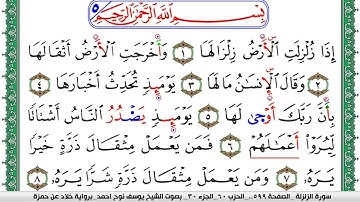 بِسْمِ اللَّهِ الرَّحْمَٰنِ الرَّحِيمِ
إِذَا زُلْزِلَتِ الْأَرْضُ زِلْزَالَهَا ١ وَأَخْرَجَتِ الْأَرْضُ أَثْقَالَهَا
٢ وَقَالَ الْإِنسَٰنُ مَا لَهَا ٣ يَوْمَئِذٍ تُحَدِّثُ أَخْبَارَهَا ٤
بِأَنَّ رَبَّكَ أَوْحَىٰ لَهَا ٥ يَوْمَئِذٍ يَصْدُرُ النَّاسُ أَشْتَاتًا
لِّيُرَوْا أَعْمَٰلَهُمْ ٦ فَمَن يَعْمَلْ مِثْقَالَ ذَرَّةٍ خَيْرًا
يَرَهُ ٧ وَمَن يَعْمَلْ مِثْقَالَ ذَرَّةٍ شَرًّا يَرَهُ
سورة الزلزلة _ الصفحة ٥٩٩ _ الحزب ٦٠ _ الجزء ٣٠ _ بصوت الشيخ يوسف نوح احمد _ برواية خلاد عن حمزة